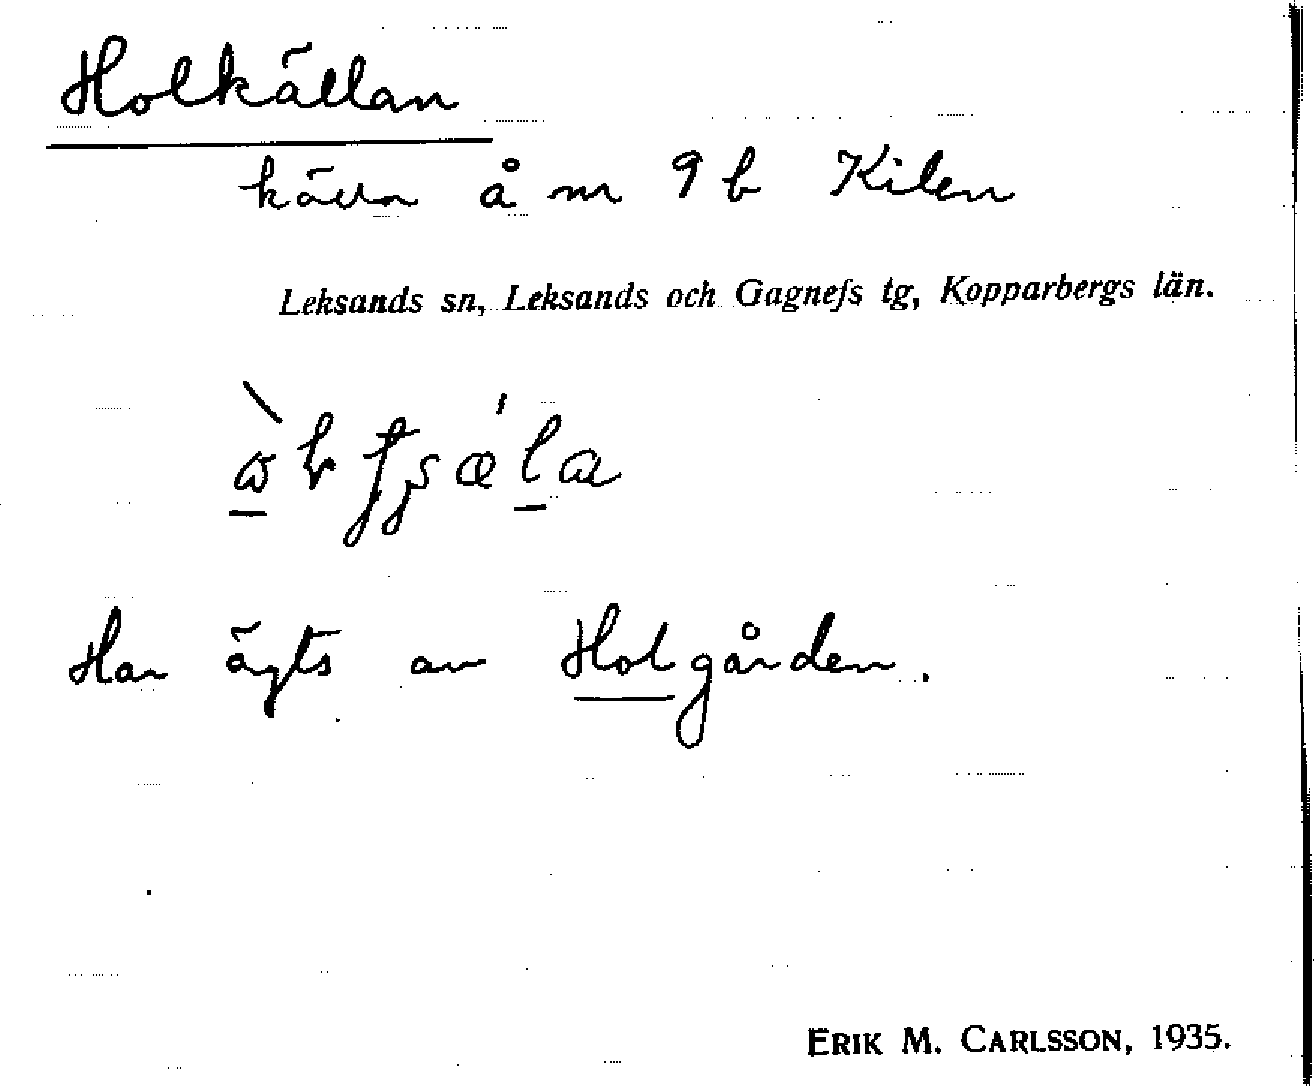 Holkällan
källa å m 9 b Kilen
Leksands sn, Leksands och Gagnefs tg, Kopparbergs län.
Har ägts av Holgården.
ERIK M. CARLSSON, 1935.